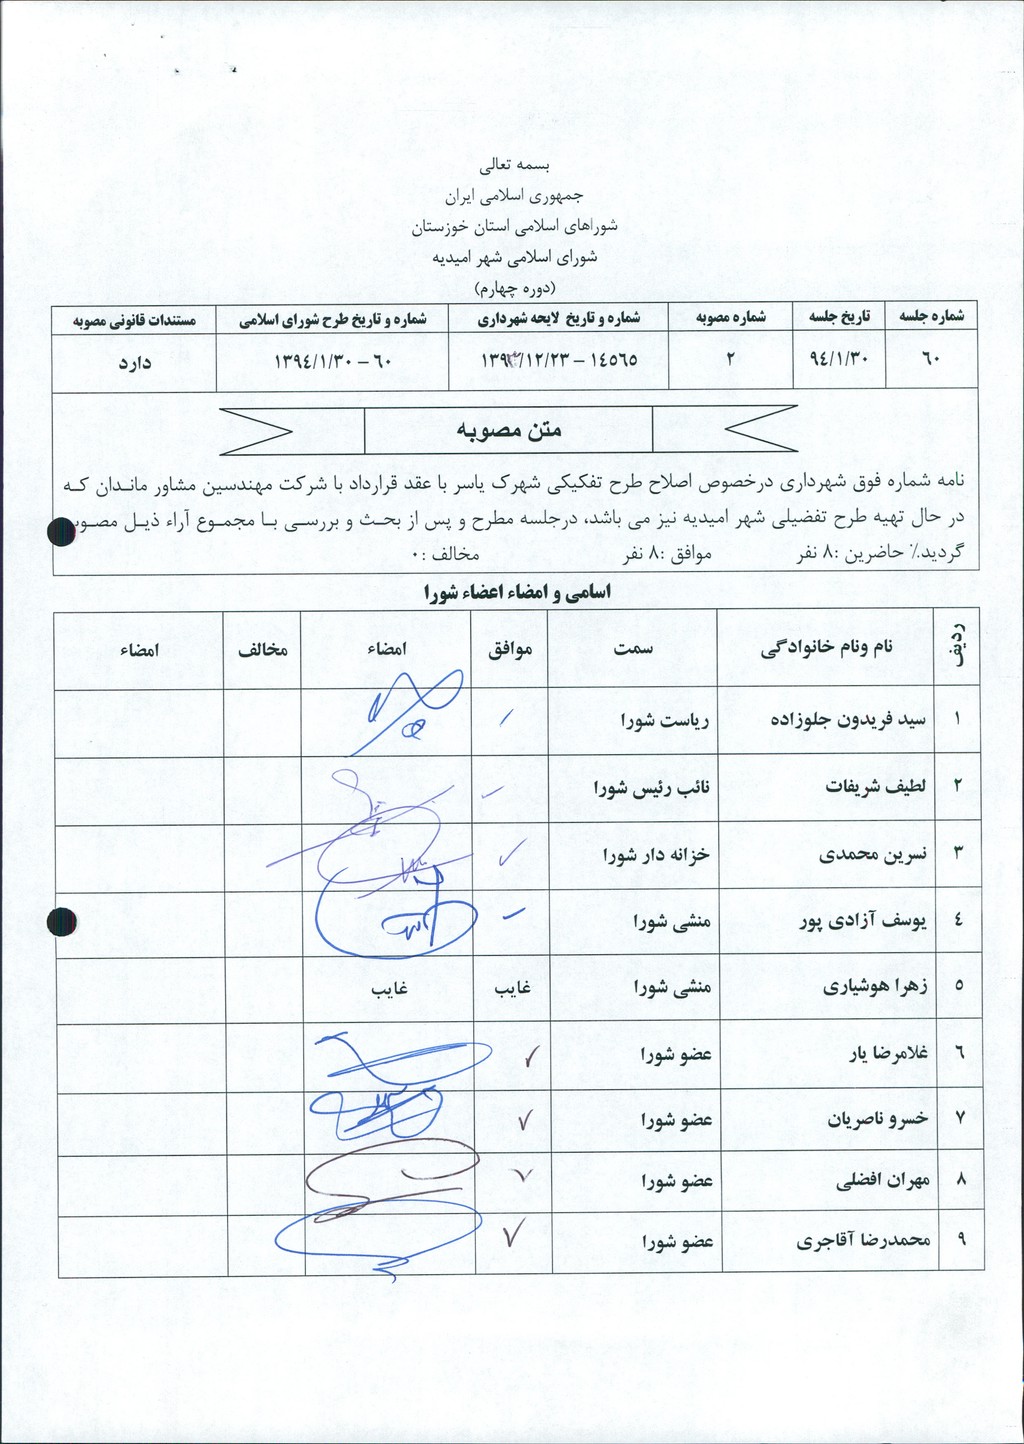 بسمه تعالی
جمهوری اسلامی ایران
شوراهای اسلامی استان خوزستان
شورای اسلامی شهر امیدیه
(دوره چهارم)
شماره جلسه تاریخ جلسه شماره مصوبه شماره و تاریخ لایحه شهرداری شماره و تاریخ طرح شورای اسلامی مستندات قانونی مصوبه
۶۰ ۹۴/۱/۳۰ ۲ ۱۴۵۶۵ – ۱۳۹۳/۱۲/۲۳ ۶۰ – ۱۳۹۴/۱/۳۰ دارد
متن مصوبه
نامه شماره فوق شهرداری درخصوص اصلاح طرح تفکیکی شهرک یاسر با عقد قرارداد با شرکت مهندسین مشاور ماندان که
در حال تهیه طرح تفضیلی شهر امیدیه نیز می باشد، درجلسه مطرح و پس از بحث و بررسی با مجموع آراء ذیل مصوب
گردید٪ حاضرین :۸ نفر موافق :۸ نفر مخالف :۰
اسامی و امضاء اعضاء شورا
ردیف نام ونام خانوادگی سمت موافق امضاء مخالف امضاء
۱ سید فریدون جلوزاده ریاست شورا
۲ لطیف شریفات نائب رئیس شورا
۳ نسرین محمدی خزانه دار شورا
۴ یوسف آزادی پور منشی شورا
۵ زهرا هوشیاری منشی شورا غایب غایب
۶ غلامرضا یار عضو شورا
۷ خسرو ناصریان عضو شورا
۸ مهران افضلی عضو شورا
۹ محمدرضا آقاجری عضو شورا